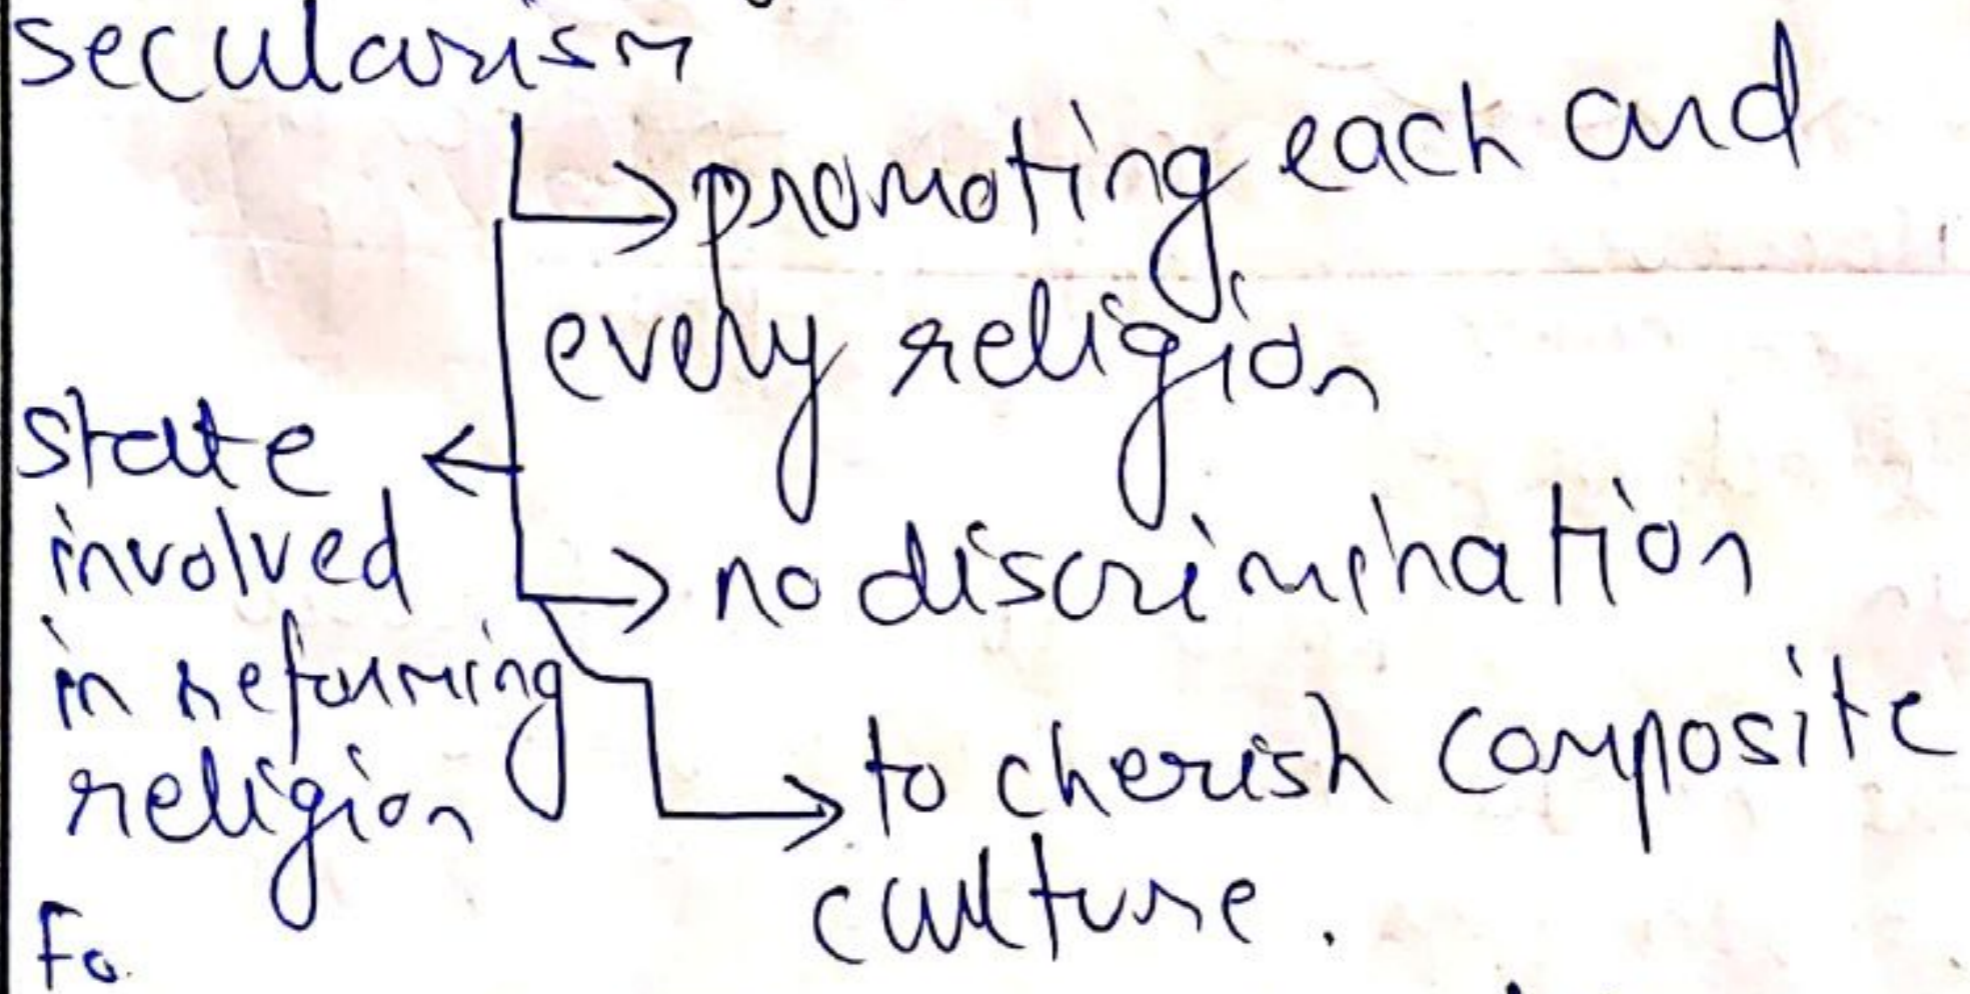 secularism
promoting each and
every religion
state
involved
in reforming
religion
no discrimination
to cherish composite
culture.
Fo